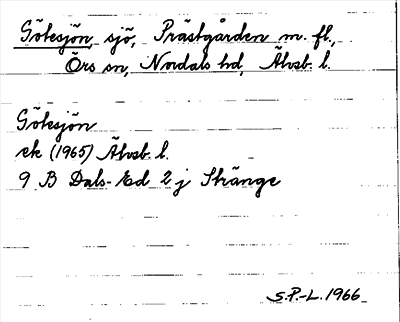 Götesjön, sjö, Prästgården m. fl.,
Örs sn, Nordals hd, Älvsb. l.
Götesjön
ek (1965) Älvsb. l.
9 B Dals-Ed 2 j Stränge
S.P.-L. 1966